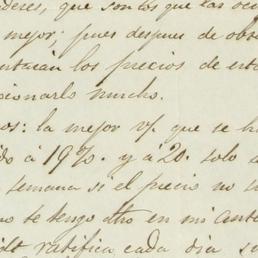 que son los que las
mejor: pues despues de
los precios de
cionarlo mucho.
os: la mejor vz. que se
á 19%. y á 20. solo
semana si el precio no
te tengo dho en mi
ratifica cada dia